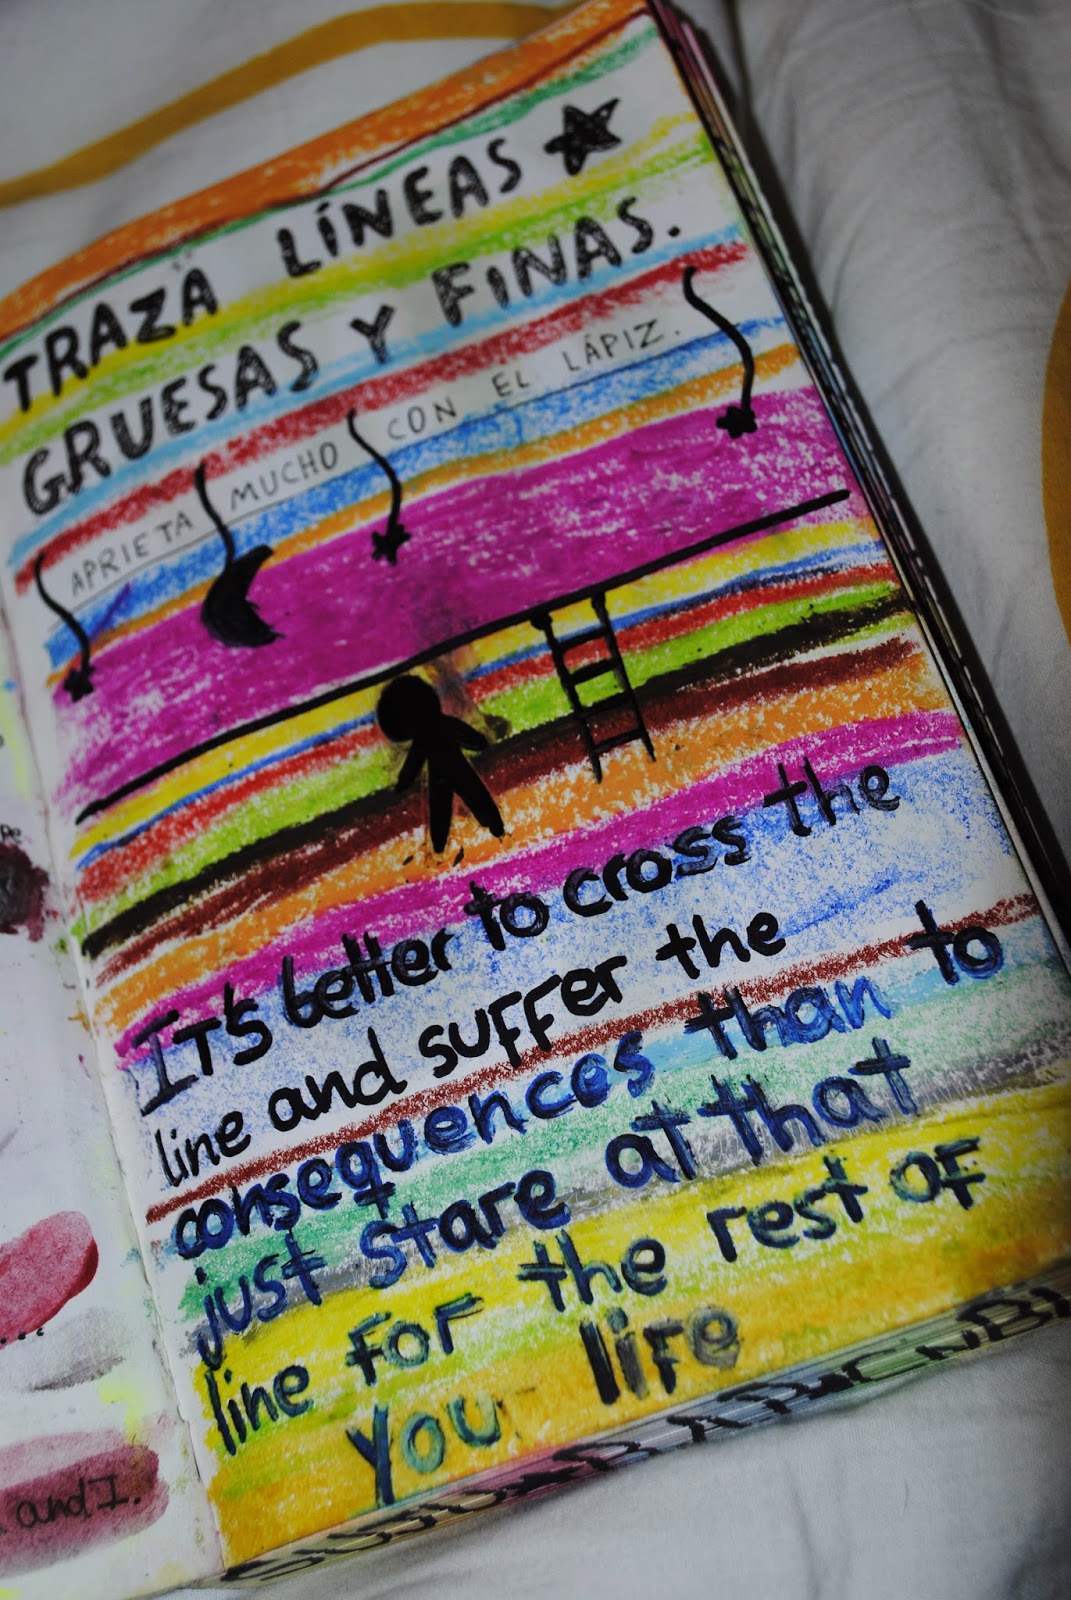 TRAZA LÍNEAS
GRUESAS Y FINAS.
APRIETA MUCHO CON EL LÁPIZ.
It's better to cross the
line and suffer the
consequences than to
just stare at that
line for the rest of
you life
and I.